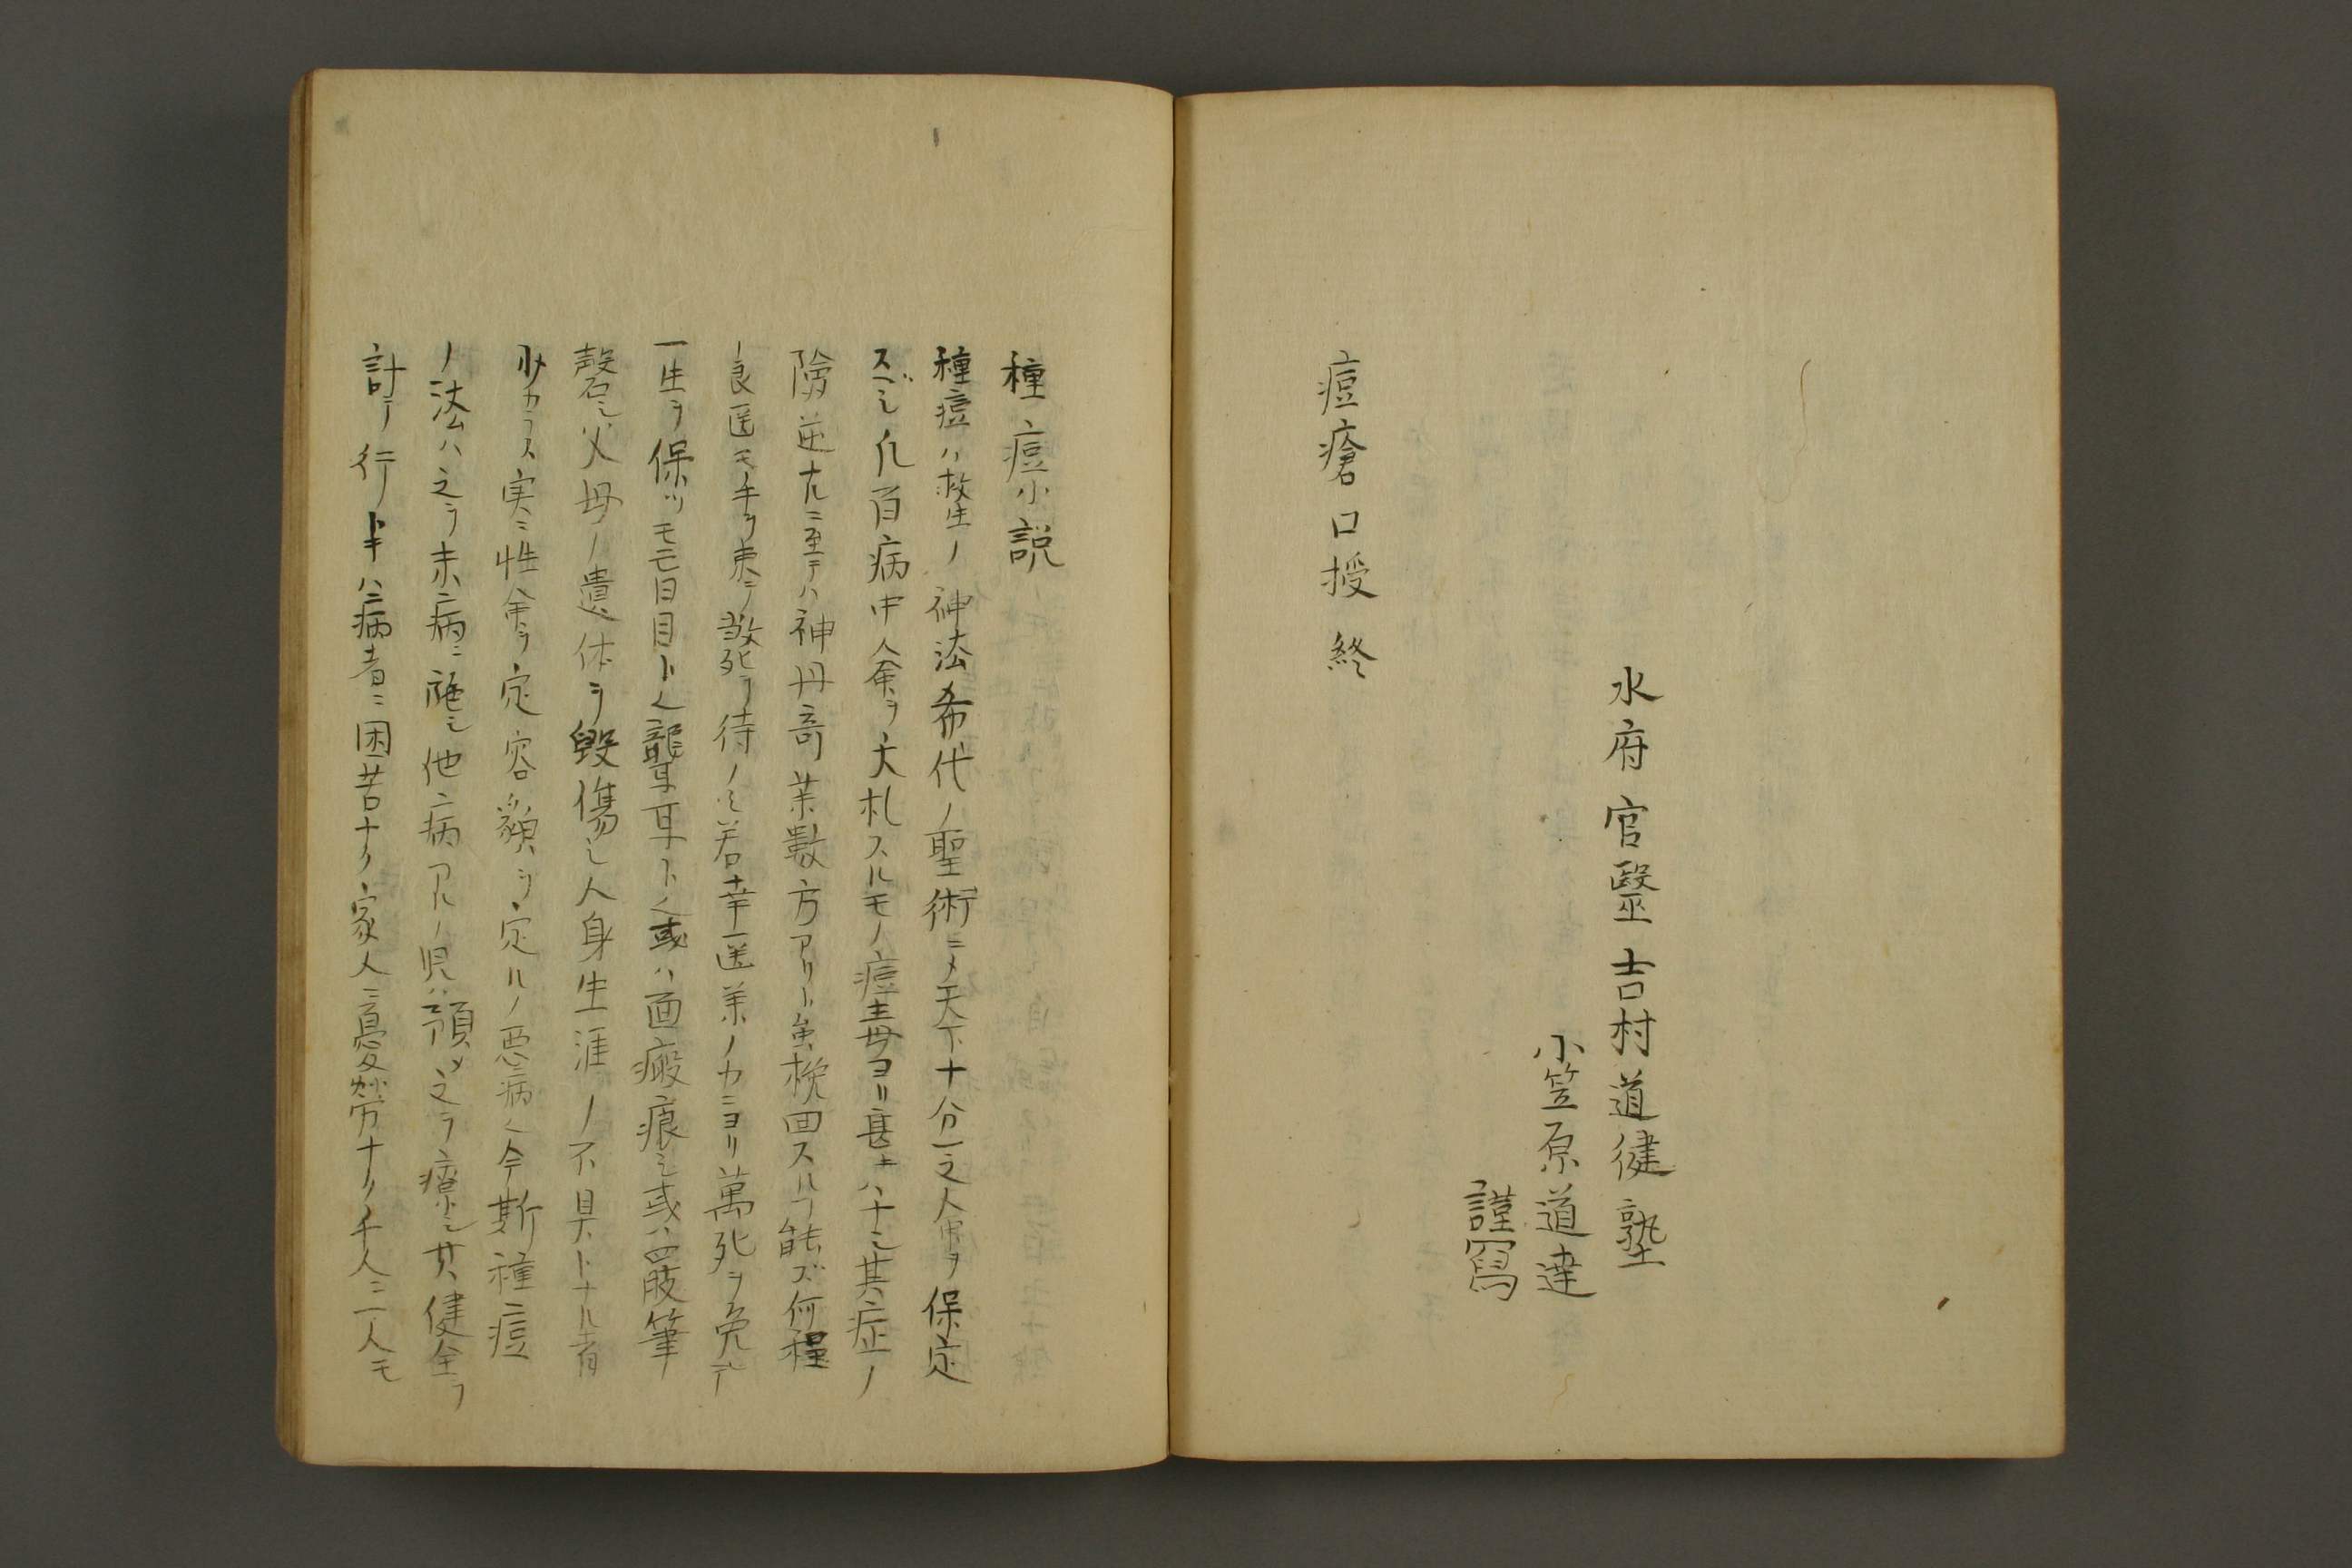 水府官醫吉村道健塾
小笠原道達
謹寫
痘瘡口授終
種痘小説
種痘ハ救生ノ神法希代ノ聖術ニメ天下十分之人命ヲ保定
スベシ凡百病中人命ヲ夭札スルモノ痘毒ヨリ甚キハナシ其症ノ
險逆ナルニ至テハ神丹奇薬數方アリト虽挽回スルヿ能ズ何程
ノ良医モ手ヲ束ニ𢾗死ヲ待ノミ若幸医薬ノカニヨリ萬死ヲ免テ
一生ヲ保ツモ目目トく聾耳トく或ハ面瘢痕シ或ハ四肢筆
磬シ父母ノ遺体ヲ毀傷シ人身生涯ノ不具トナル者
少カラス実ニ性命ヲ定容顔ヲ定ルノ悪病く今斯種痘
ノ法ハ之ヲ未病ニ施シ他病アルノ児ハ預メ之ヲ療シ其健全ヲ
計テ行トキハ病者ニ困苦ナク家人ニ憂愁労ナリ千人ニ一人モ